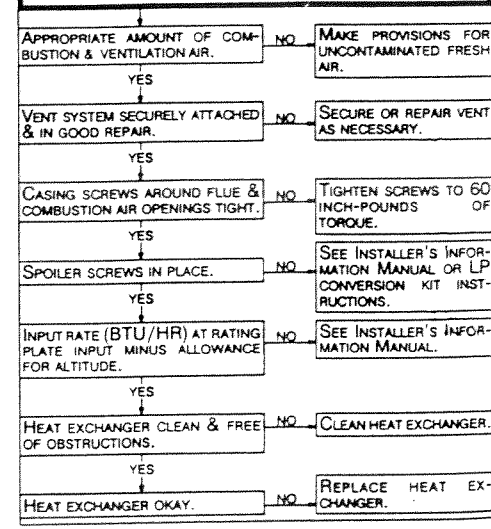 APPROPRIATE AMOUNT OF COM-
BUSTION & VENTILATION AIR.
NO
MAKE PROVISIONS FOR
UNCONTAMINATED FRESH
AIR.
YES
VENT SYSTEM SECURELY ATTACHED
& IN GOOD REPAIR.
NO
SECURE OR REPAIR VENT
AS NECESSARY.
YES
CASING SCREWS AROUND FLUE &
COMBUSTION AIR OPENINGS TIGHT.
NO
TIGHTEN SCREWS TO 60
INCH-POUNDS OF
TORQUE.
YES
SPOILER SCREWS IN PLACE.
NO
SEE INSTALLER'S INFOR-
MATION MANUAL OR LP
CONVERSION KIT INST-
RUCTIONS.
YES
INPUT RATE (BTU/HR) AT RATING
PLATE INPUT MINUS ALLOWANCE
FOR ALTITUDE.
NO
SEE INSTALLER'S INFOR-
MATION MANUAL.
YES
HEAT EXCHANGER CLEAN & FREE
OF OBSTRUCTIONS.
NO
CLEAN HEAT EXCHANGER.
YES
HEAT EXCHANGER OKAY.
NO
REPLACE HEAT EX-
CHANGER.